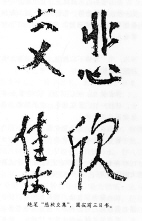 悲欣
交集
绝笔“悲欣交集”，圆寂前三日书。